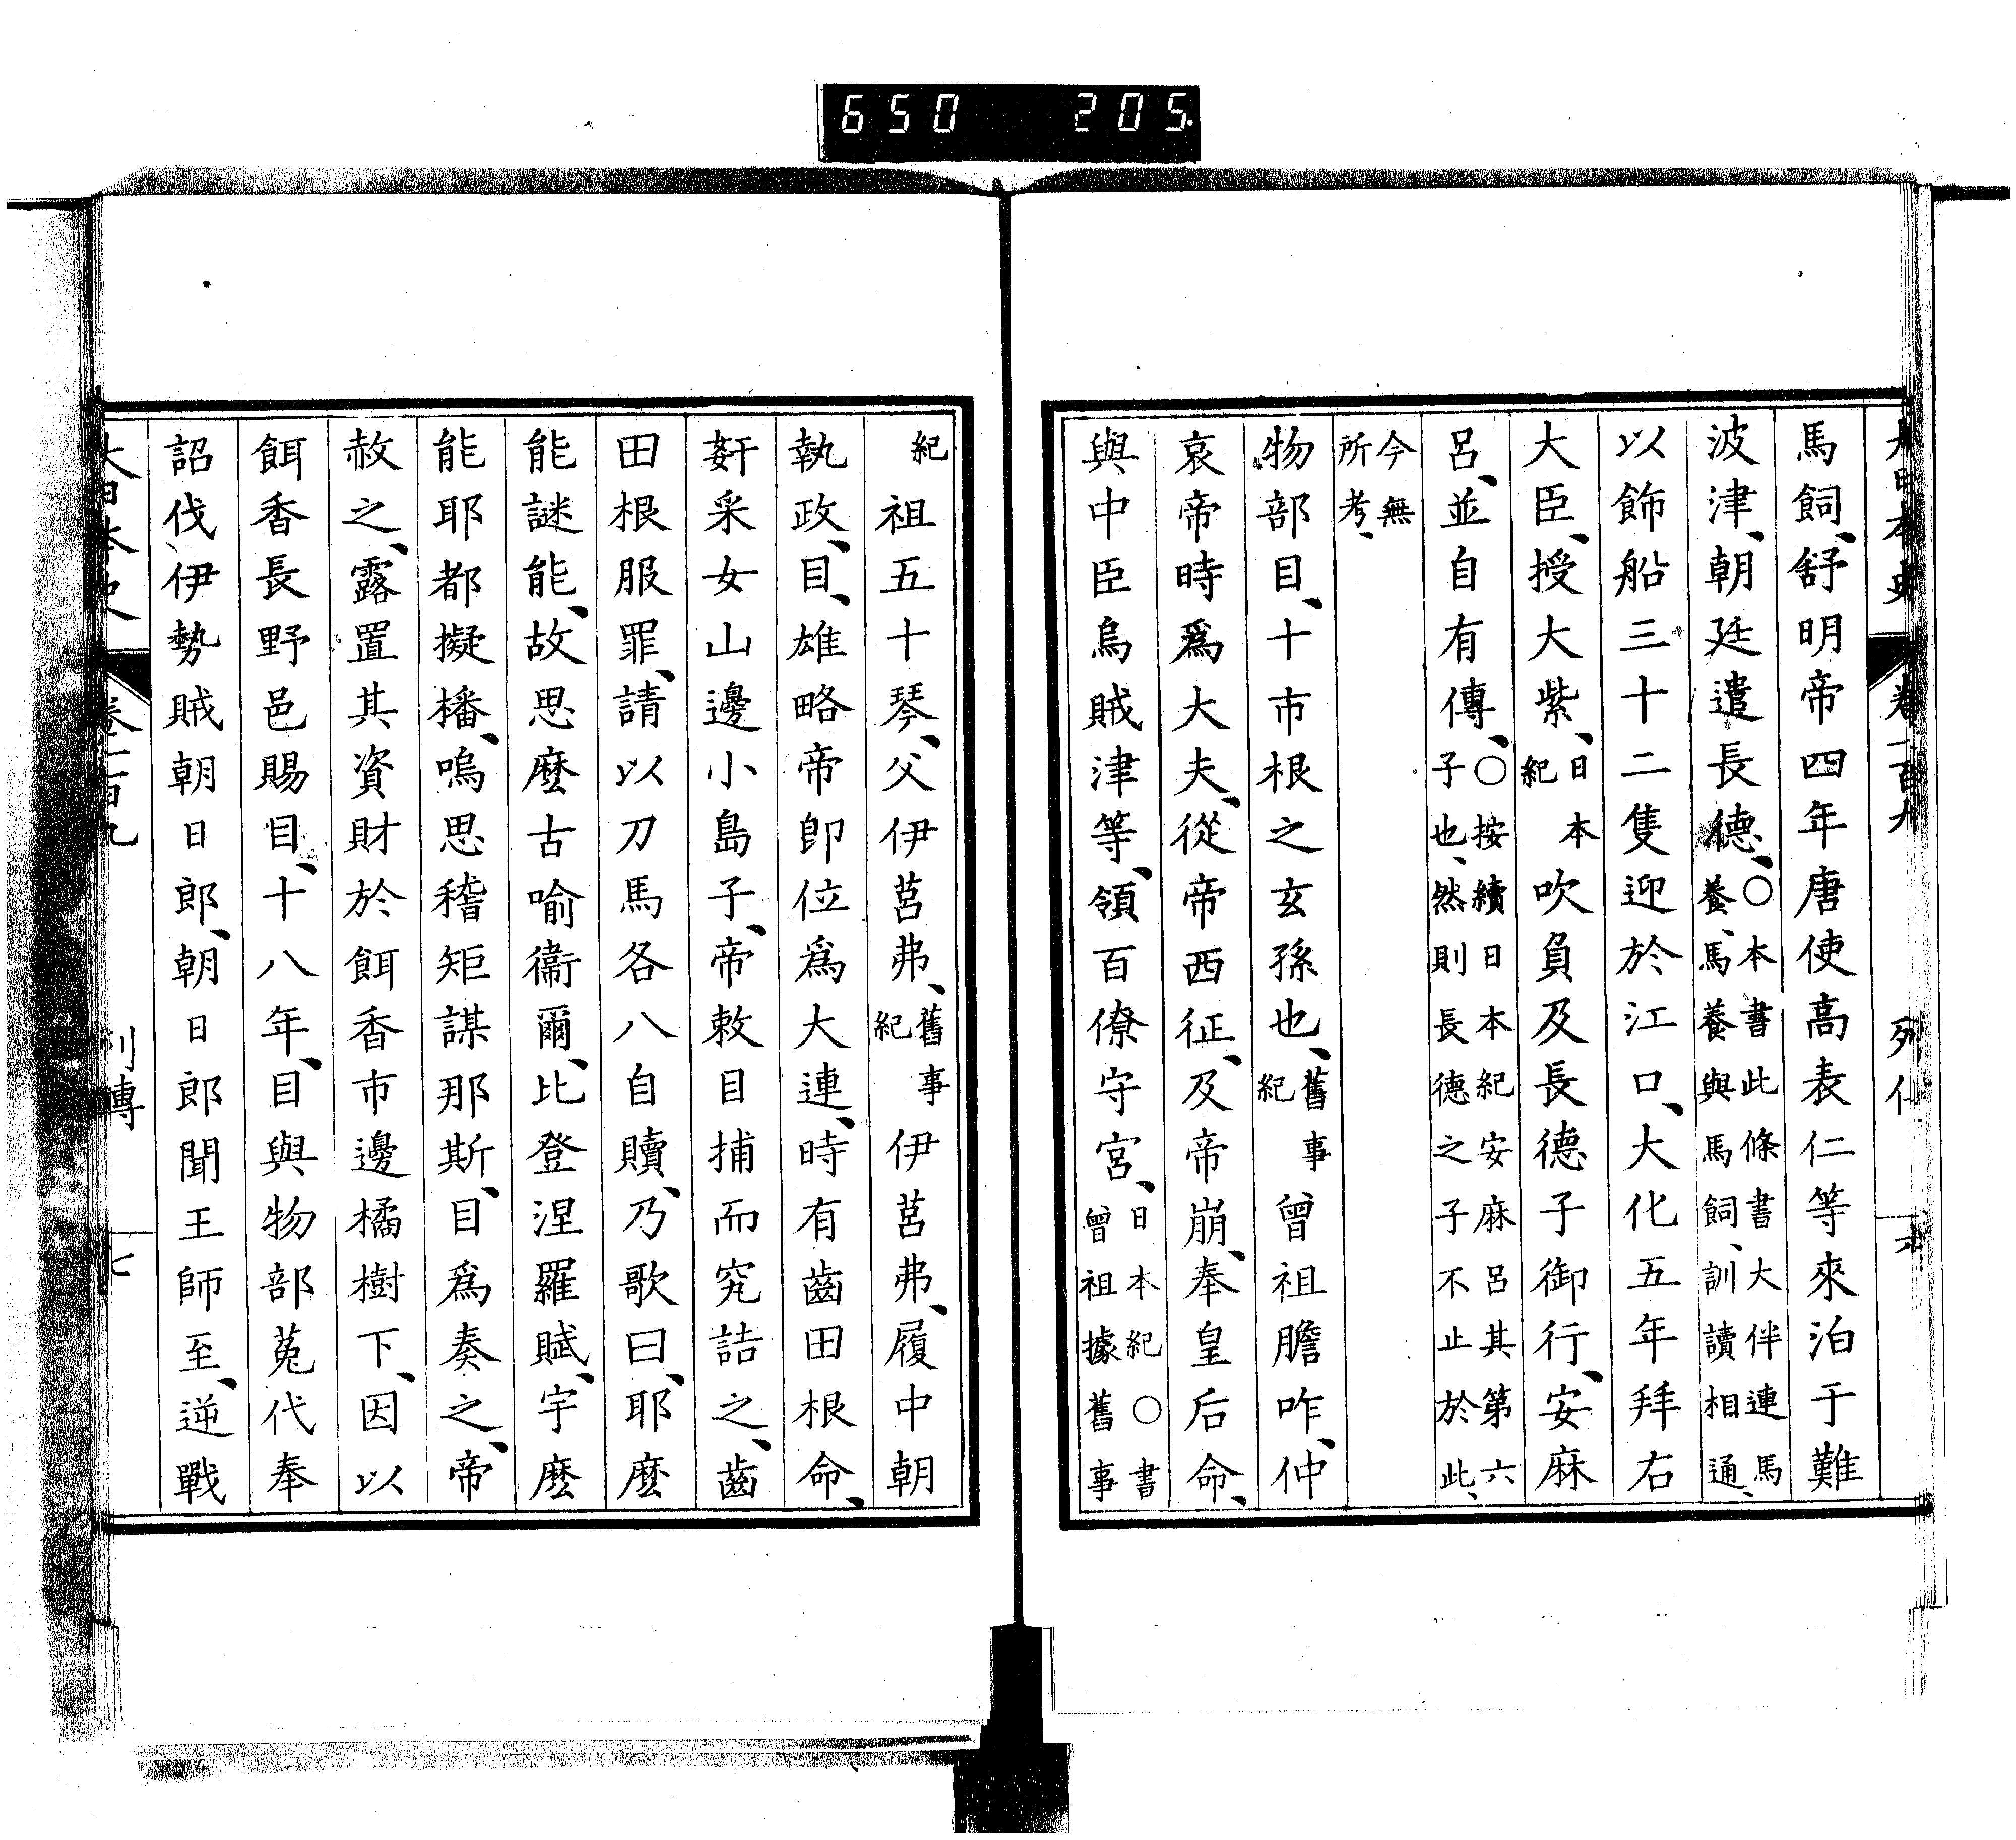 650 205.
大日本史 卷一百九 列傳 六
馬飼、舒明帝四年唐使高表仁等來泊于難
波津、朝廷遣長德、〇本書此條書大伴連馬養、馬養與馬飼、訓讀相通、
以飾船三十二隻迎於江口、大化五年拜右
大臣、授大紫、日本紀吹負及長德子御行、安麻
呂、並自有傳、〇按續日本紀安麻呂其第六子也、然則長德之子不止於此、
今無所考、
物部目、十市根之玄孫也、舊事紀曾祖膽咋、仲
哀帝時爲大夫、從帝西征、及帝崩、奉皇后命、
與中臣烏賊津等、領百僚守宮、日本紀〇書曾祖據舊事
紀祖五十琴、父伊莒弗、舊事紀伊莒弗、履中朝
執政、目、雄略帝卽位爲大連、時有齒田根命、
姧采女山邊小島子、帝敕目捕而究詰之、齒
田根服罪、請以刀馬各八自贖、乃歌曰、耶麼
能謎能、故思麼古喩衞爾、比登涅羅賦、宇麼
能耶都擬播、嗚思稽矩謀那斯、目爲奏之、帝
赦之、露置其資財於餌香市邊橘樹下、因以
餌香長野邑賜目、十八年、目與物部菟代奉
詔伐伊勢賊朝日郎、朝日郎聞王師至、逆戰
大日本史 卷一百九 列傳 七